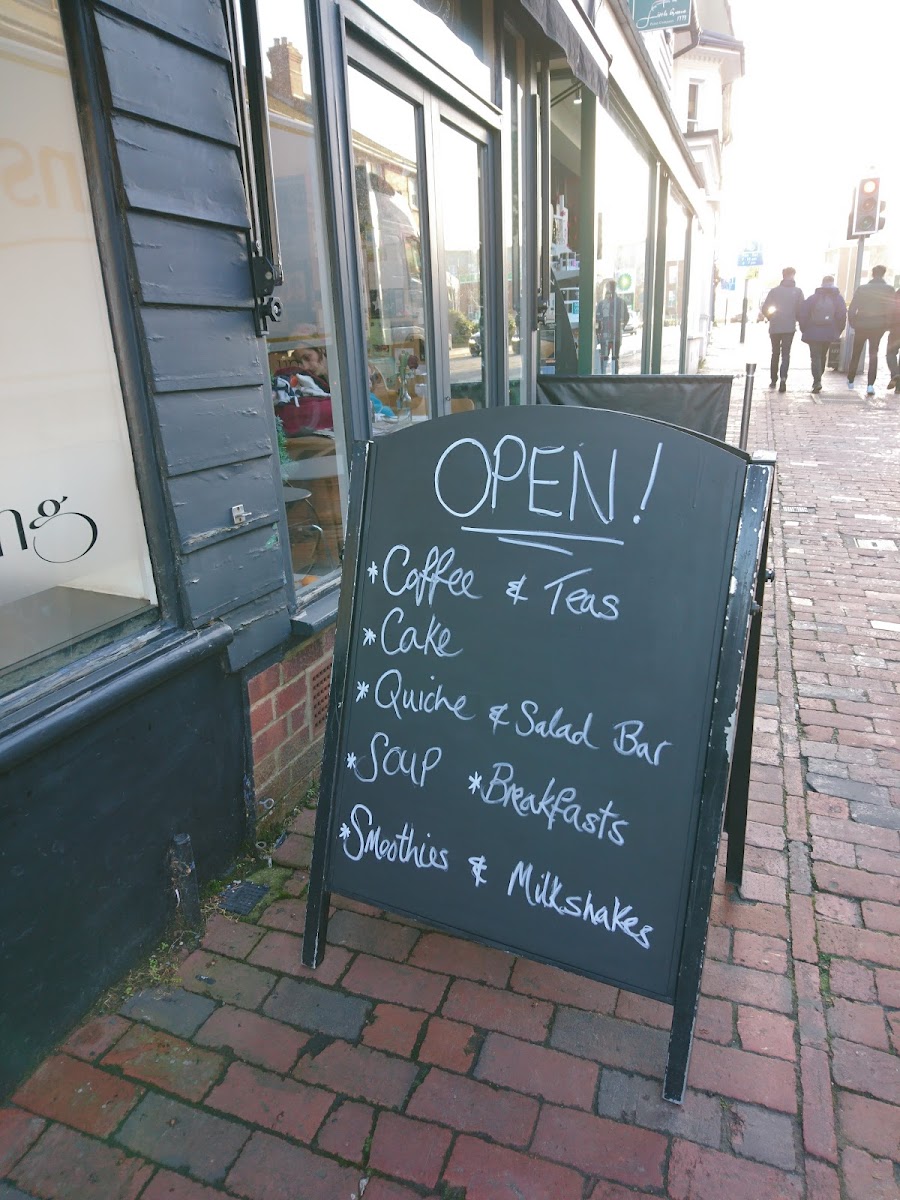 OPEN!
*Coffee & Teas
*Cake
*Quiche & Salad Bar
*Soup *Breakfasts
*Smoothies & Milkshakes
ng